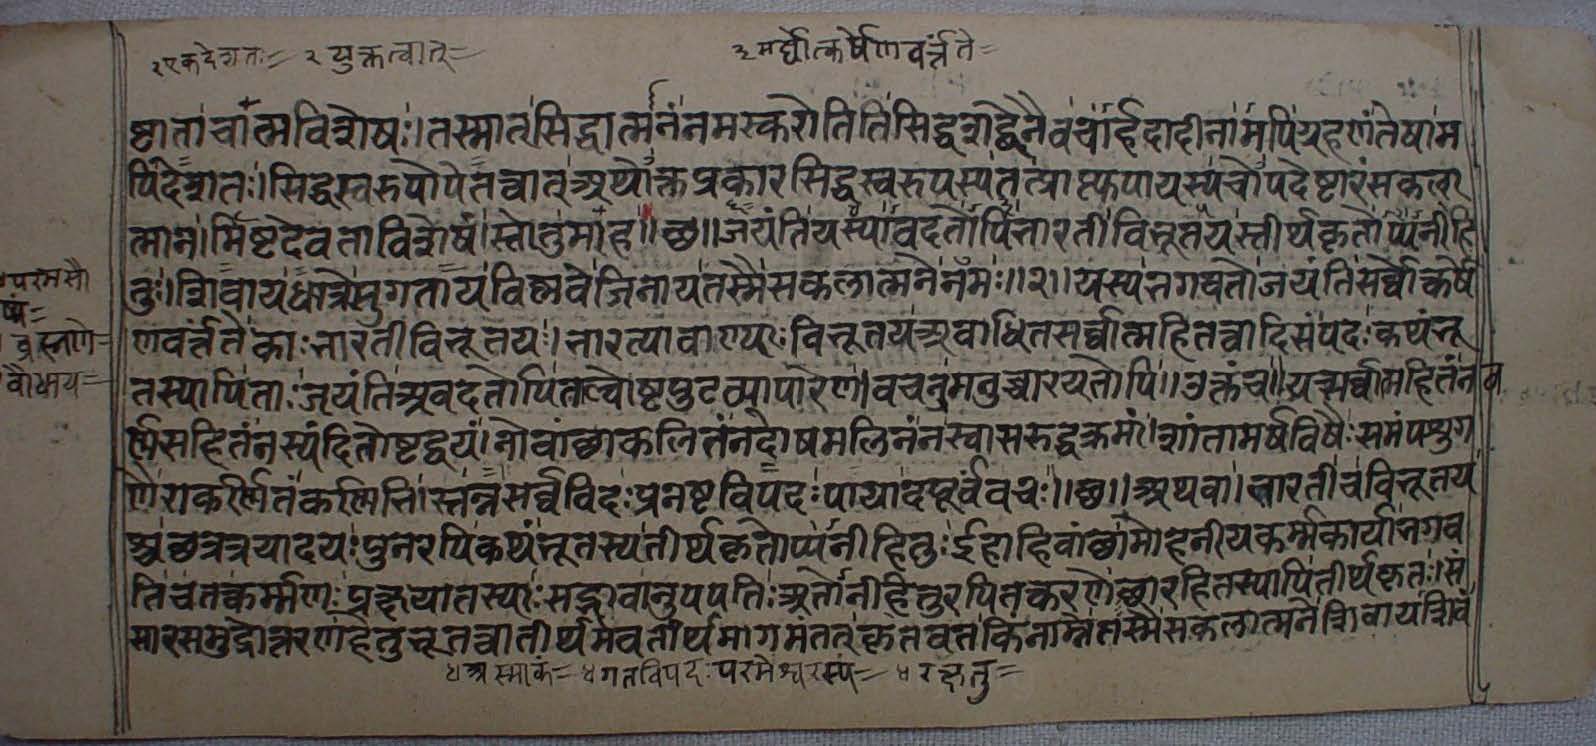 १ एकदेशतः= २ युक्तत्वात्= ३ सर्वोत्कर्षेण वर्त्तते=
ष्टाता चात्मविशेषः। तस्मात् सिद्धात्मानं नमस्करोतीति सिद्धशब्देनैव चार्हदादीनामपि ग्रहणं तेषाम
पि देशतः। सिद्धस्वरूपोपेतत्वात् अथोक्तप्रकारसिद्धस्वरूपस्य तत्प्राप्त्युपायस्य चोपदेष्टारं सकला
त्मानमिष्टदेवताविशेषं स्तोतुमाह॥ छ॥ जयंति यस्यावदतोपि भारती विभूतयस्तीर्थकृतोप्यनीहि
तुः। शिवाय धात्रे सुगताय विष्णवे जिनाय तस्मै सकलात्मने नमः॥२॥ यस्य भगवतो जयंति सर्वोत्कर्षे
ण वर्त्तते काः भारतीविभूतयः। भारत्या वाण्याः विभूतयः अबाधितसर्वात्महितत्वादिसंपदः कथंभू
तस्यापि ताः जयंति अवदतोपि ताल्वोष्टपुटव्यापारेण वचनमनुच्चारयतोपि। उक्तं च॥ यत्सर्वात्महितं न व
र्णसहितं न स्पंदितोष्टद्वयं। नो वांछाकलितं न दोषमलिनं न स्वासरुद्धक्रमं। शांतामर्षविषैः समं पशुग
णैराकर्णितं कर्णिभिः। स्तन्नः सर्वविदः प्रनष्टविपदः पायादपूर्वं वचः॥ छ॥ अथवा। भारती च विभूतय
श्च छत्रत्रयादयः पुनरपि कथंभूतस्य तीर्थकृतोप्यनीहितुः ईहा हि वांछा मोहनीयकर्मकार्या भगव
ति च तत्कर्मणः प्रक्षयात्तस्याः सद्भावानुपपत्तिः अतोनीहितुरपि तत्करणेच्छारहितस्यापि तीर्थकृतः। सं
सारसमुद्रोत्तरणहेतुभूतत्वात्तीर्थमेव तीर्थमागमं तत् कृतवतः किं नाम्ने तस्मै सकलात्मने शिवाय शिवं
परमसौ
ख्यं=
ब्रह्मणे=
बोधाय=
४ अस्माकं= ५ गतविपदः परमेश्वरस्य= ५ रक्षतु=